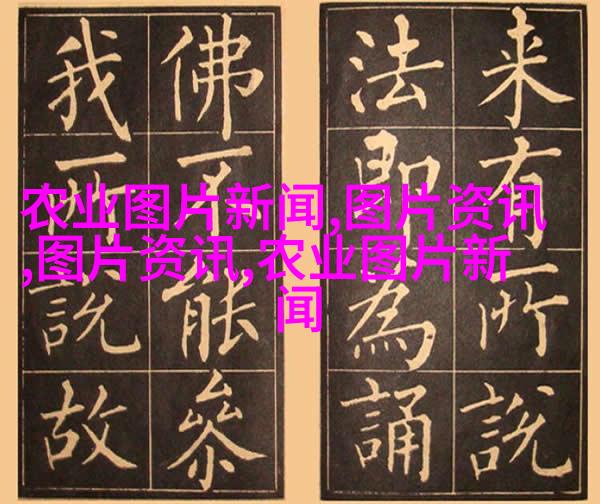 来有所說
法即為誦
佛不能參
我所說故
农业图片新闻,图片资讯
,图片资讯,农业图片新
闻